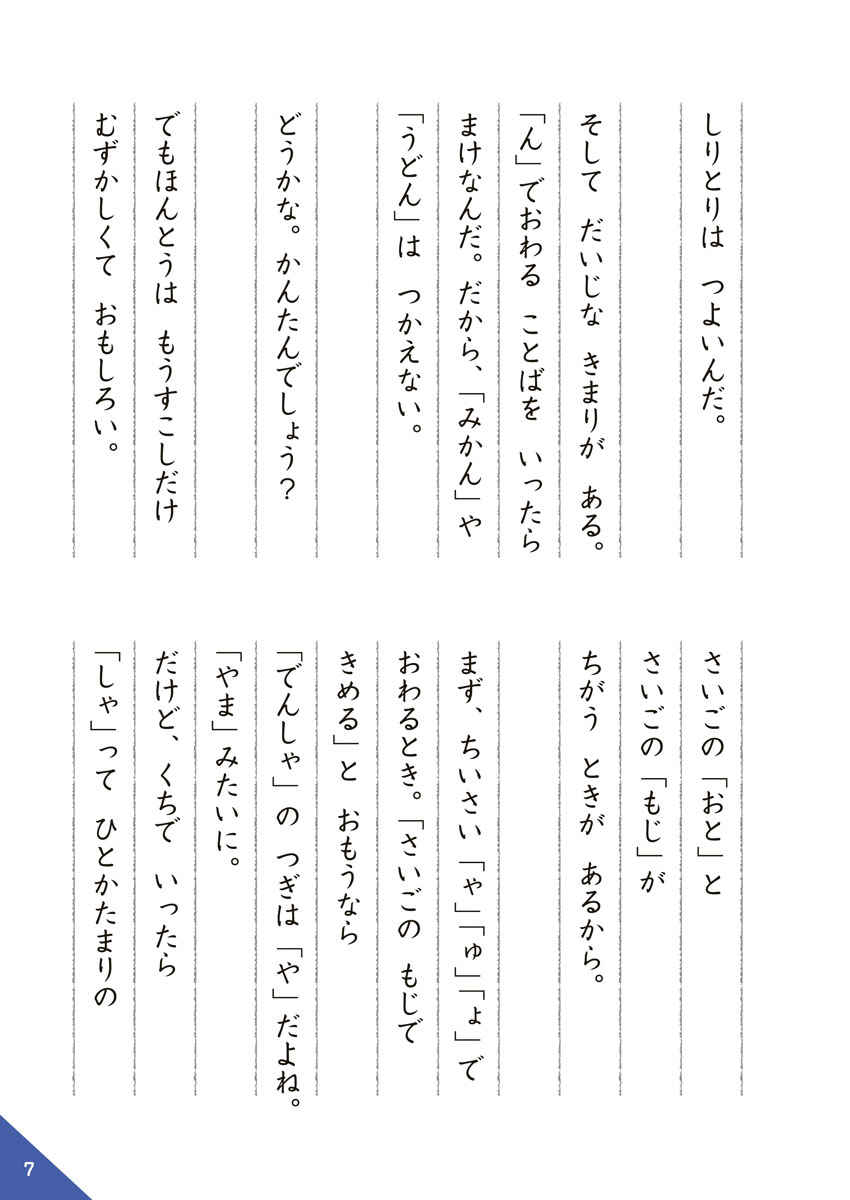 しりとりは つよいんだ。
そして だいじな きまりが ある。
「ん」でおわる ことばを いったら
まけなんだ。だから、「みかん」や
「うどん」は つかえない。
どうかな。かんたんでしょう?
でもほんとうは もうすこしだけ
むずかしくて おもしろい。
さいごの「おと」と
さいごの「もじ」が
ちがう ときが あるから。
まず、ちいさい「ゃ」「ゅ」「ょ」で
おわるとき。「さいごの もじで
きめる」と おもうなら
「でんしゃ」の つぎは「や」だよね。
「やま」みたいに。
だけど、くちで いったら
「しゃ」って ひとかたまりの
7